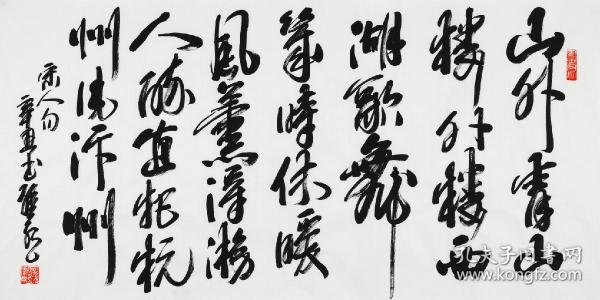 山外青山
楼外楼西
湖歌舞
幾時休暖
風薰得游
人醉直把杭
州作汴州
宋人句
辛丑
孔夫子旧书网
www.kongfz.com